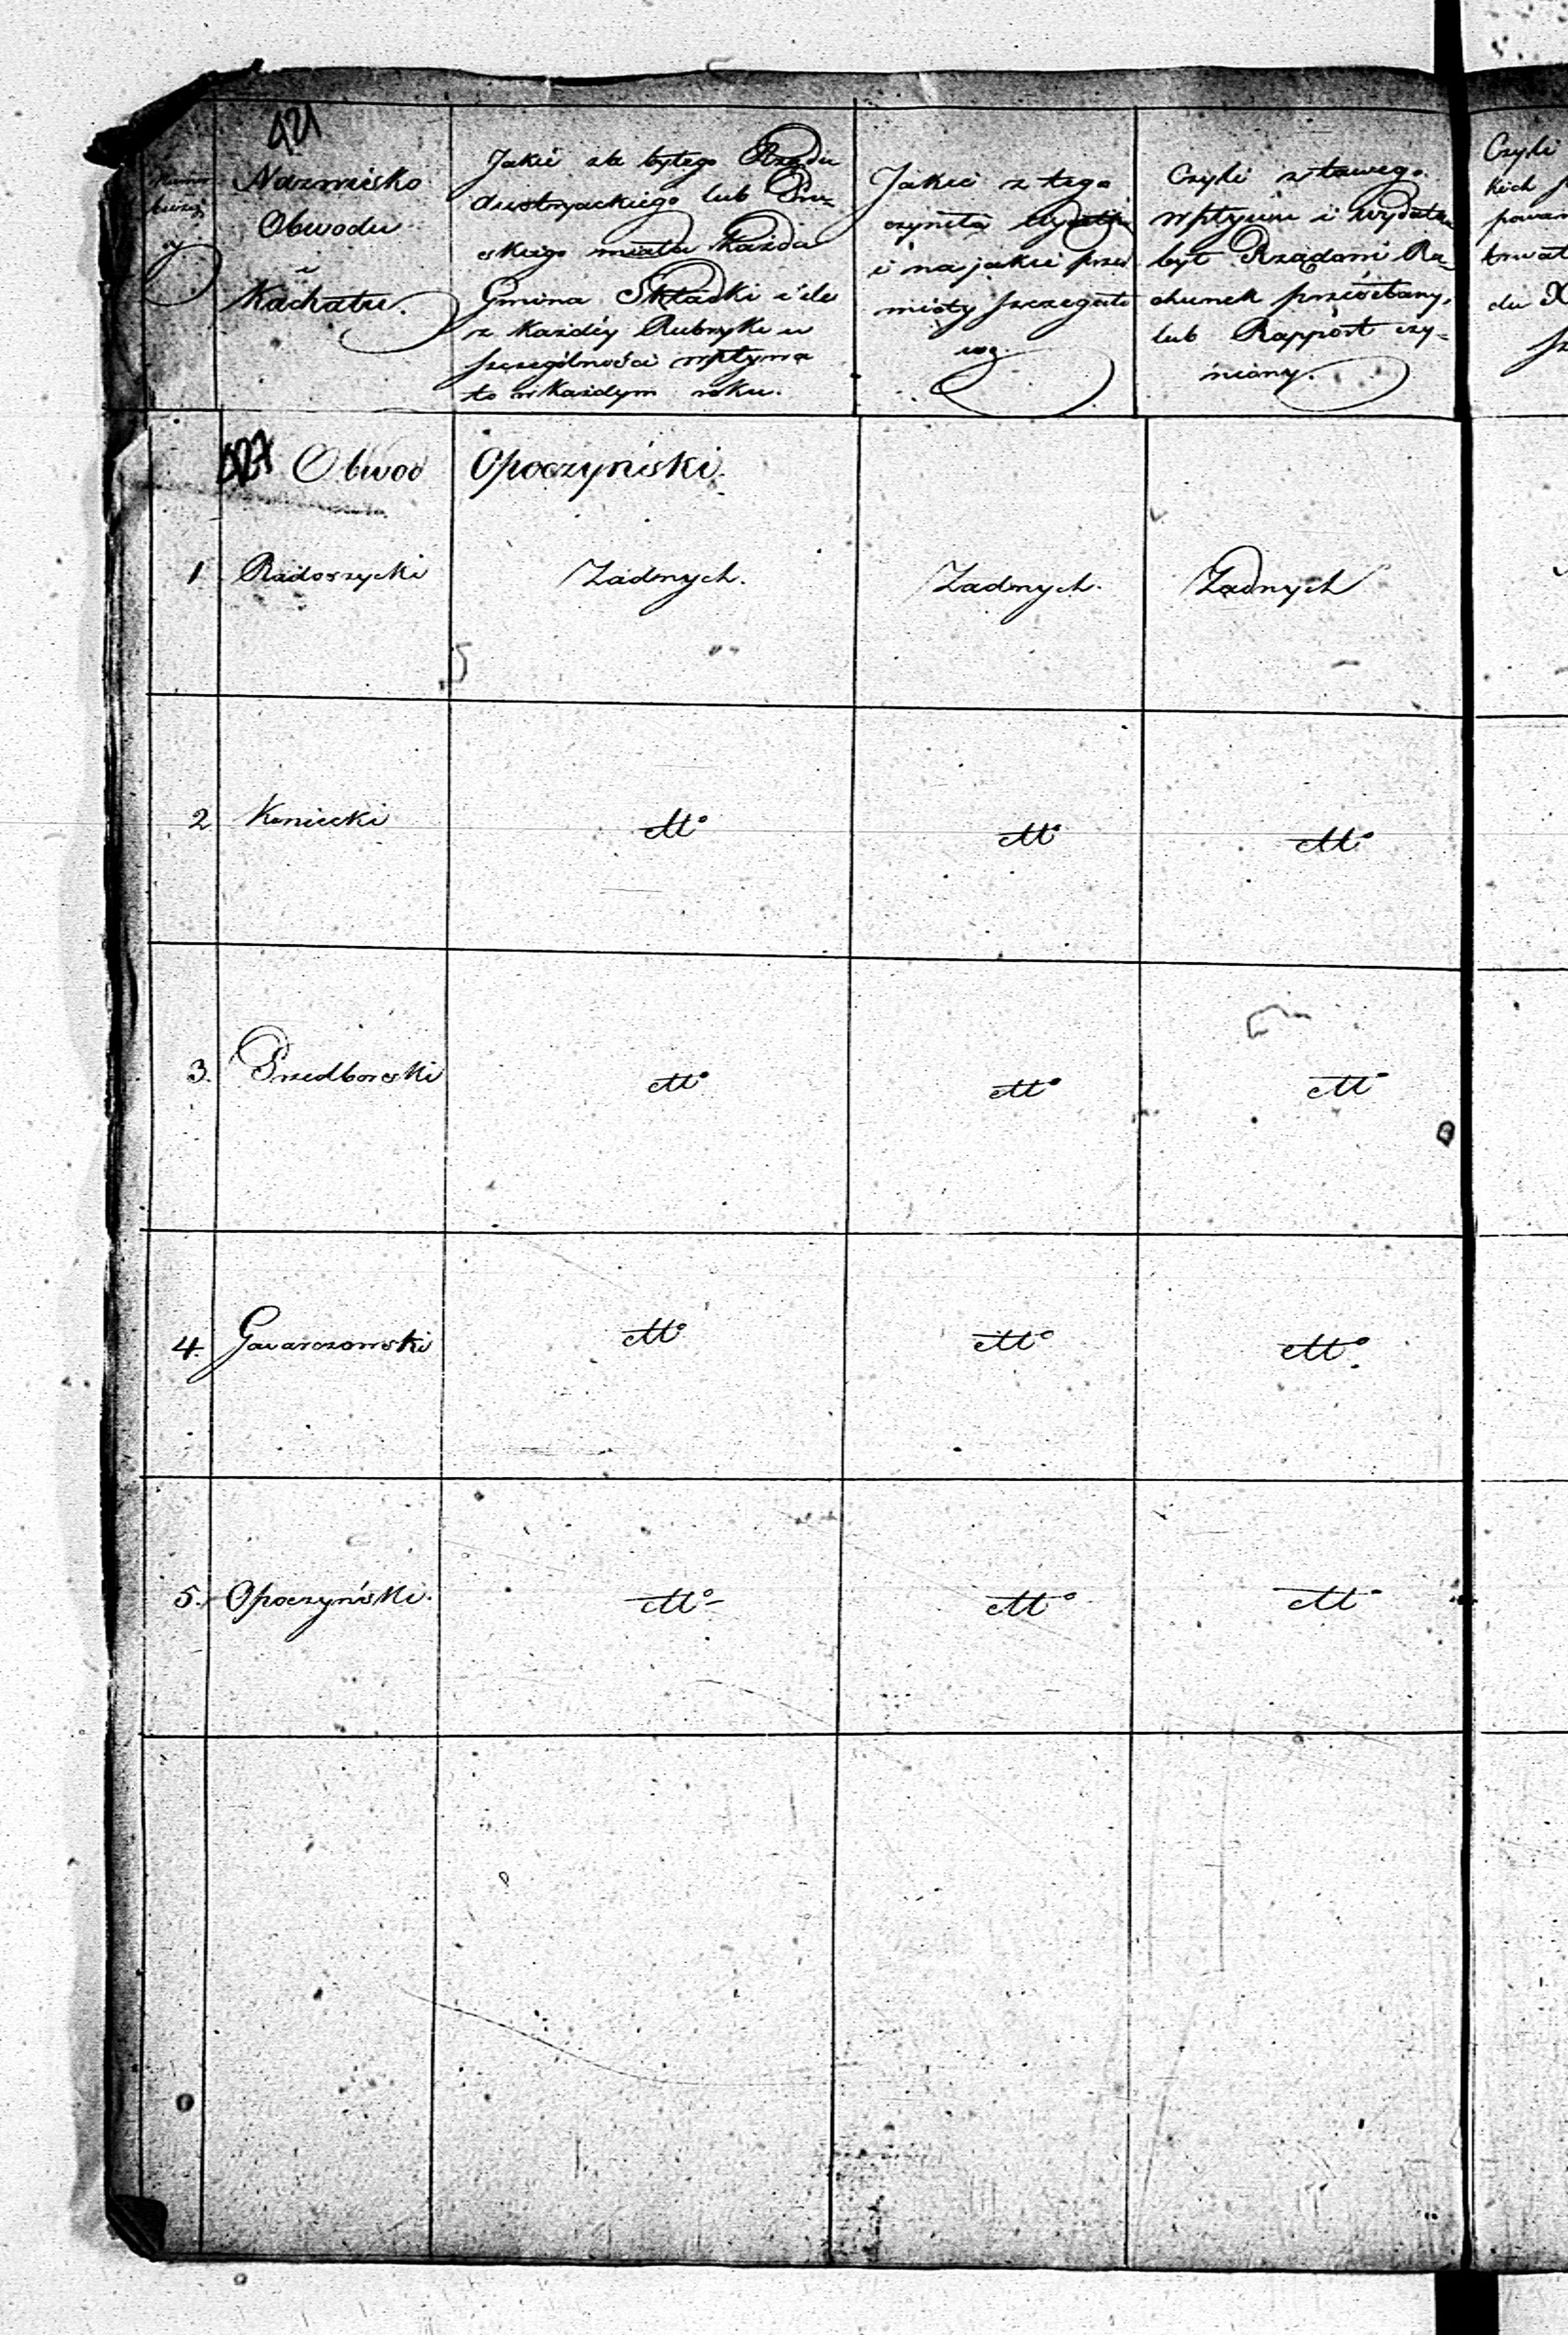 421
Nazwisko
Obwodu
i
Kachatu.
Jakie za byłego Rządu
Austryackiego lub Pru-
skiego miała Każda
Gmina Składki i ile
z każdéy Rubryki w
szczególności wpływa
to w każdym roku.
Jakie z tego
czyniła wydatki
i na jakie przed
mioty szczegóło
we.
Czyli z tawego
wpływu i wydatku
był Rządowi Ra-
chunek przesełany,
lub Rapport czy-
niony.
Czyli
kich
powar
trwał
du
427 Obwod Opoczyński.
1 Radoszycki Żadnych. Żadnych. Żadnych
2 Koniecki dtto dtto dtto
3. Przedborski dtto dtto dtto
4. Gowarczowski dtto dtto dtto
5. Opoczyński. dtto dtto dtto